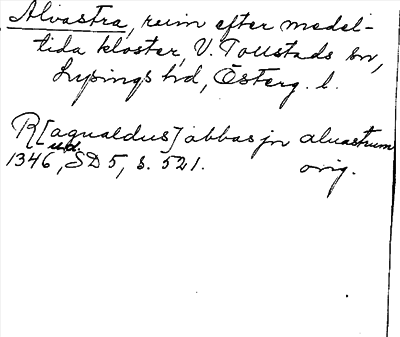 Alvastra, ruin efter medel-
tida kloster, V. Tollstads sn,
Lysings hd, Österg. l.
R[agualdus] abbas jn aluastrum
u.d.
1346, SD 5, s. 521. orig.